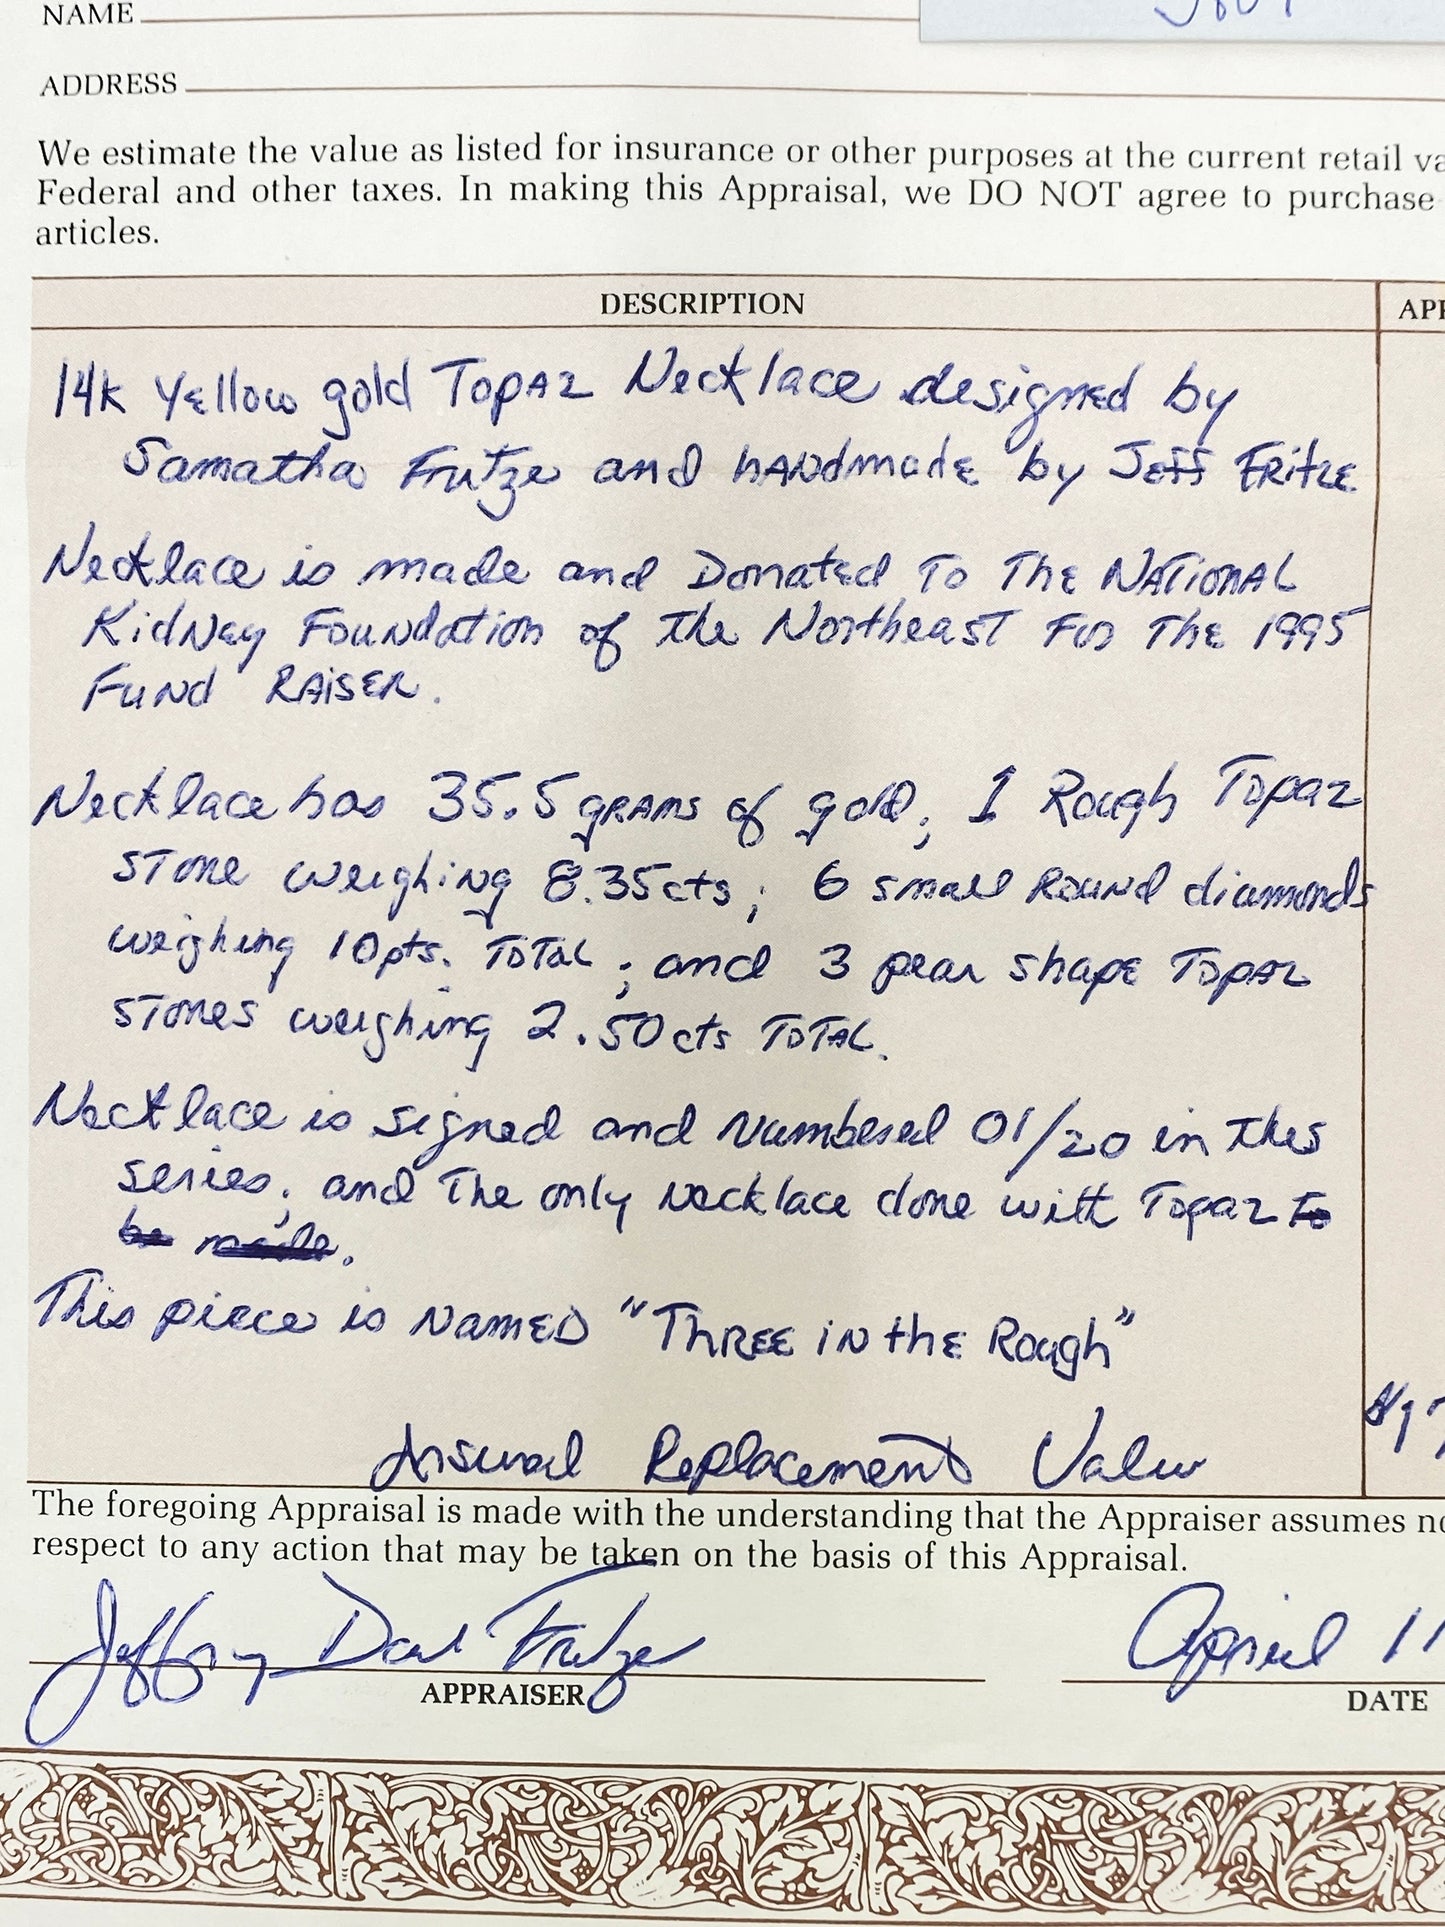 NAME
ADDRESS
We estimate the value as listed for insurance or other purposes at the current retail va
Federal and other taxes. In making this Appraisal, we DO NOT agree to purchase
articles.
DESCRIPTION
14k Yellow gold Topaz Necklace designed by
Samatha Fritze and handmade by Jeff Fritze
Necklace is made and Donated To The National
Kidney Foundation of the Northeast For The 1995
Fund Raiser.
Necklace has 35.5 grams of gold; 1 Rough Topaz
stone weighing 8.35cts; 6 small Round diamonds
weighing 10pts. Total; and 3 pear shape Topaz
stones weighing 2.50cts Total.
Necklace is signed and Numbered 01/20 in this
series; and The only Necklace done with Topaz to
be made.
This piece is Named "Three in the Rough"
$17
Insural Replacement Value
The foregoing Appraisal is made with the understanding that the Appraiser assumes no
respect to any action that may be taken on the basis of this Appraisal.
Jeffrey Fritze April 11
APPRAISER DATE